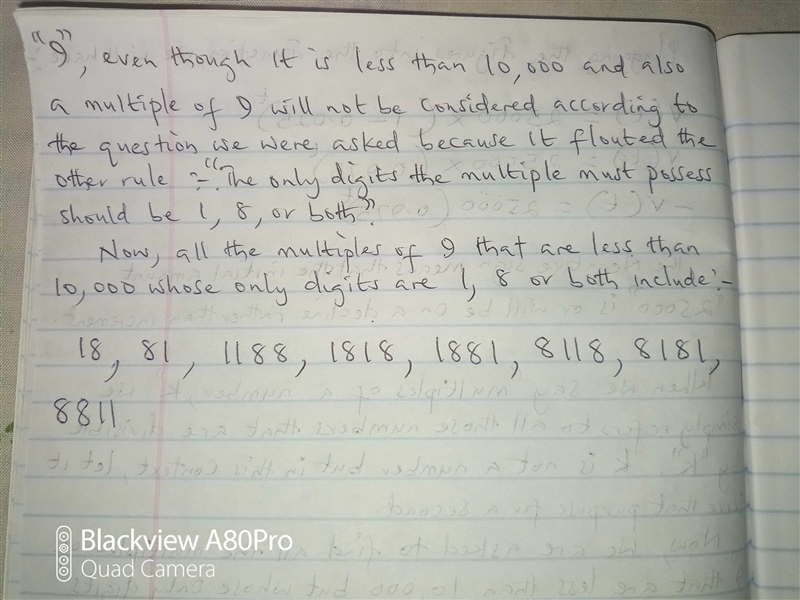 "9", even though it is less than 10,000 and also
a multiple of 9 will not be considered according to
the question we were asked because it flouted the
other rule :- "The only digits the multiple must possess
should be 1, 8, or both".
Now, all the multiples of 9 that are less than
10,000 whose only digits are 1, 8 or both include:-
18, 81, 1188, 1818, 1881, 8118, 8181,
8811
Blackview A80Pro
Quad Camera